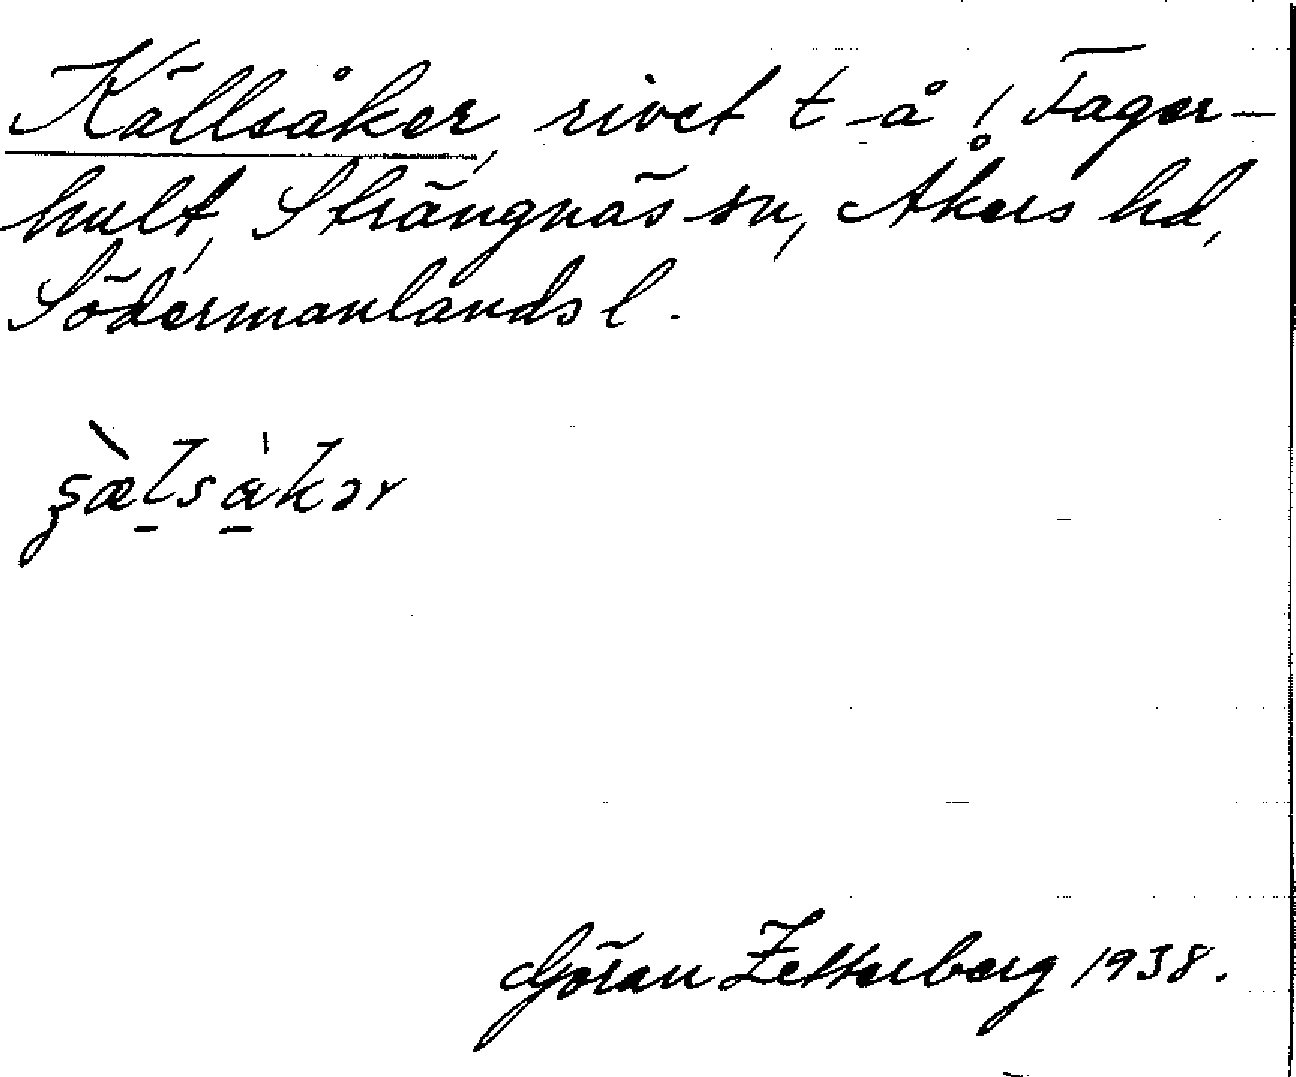 Källsåker, rivet t -å i Fager-
hult, Strängnäs sn, Åkers hd,
Södermanlands l.
Göran Zetterberg 1938.